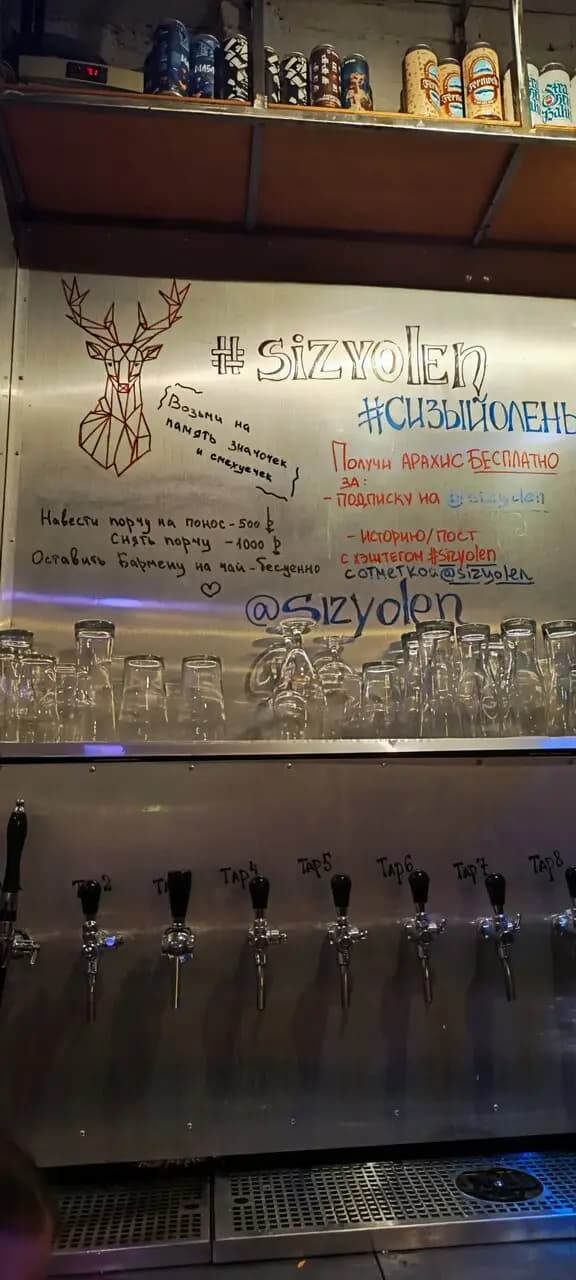 #SIZYOLEN
#СИЗЫЙОЛЕНЬ
Возьми на
память значочек
и смехуечек
Получи АРАХИС БЕСПЛАТНО
ЗА:
- ПОДПИСКУ НА @sizyolen
- ИСТОРИЮ/ПОСТ
С ХЭШТЕГОМ #sizyolen
С ОТМЕТКОЙ @sizyolen
Навести порчу на понос - 500 ₽
Снять порчу - 1000 ₽
Оставить Бармену на чай - бесценно
@sizyolen
Тар4
Тар5
Тар6
Тар7
Тар8